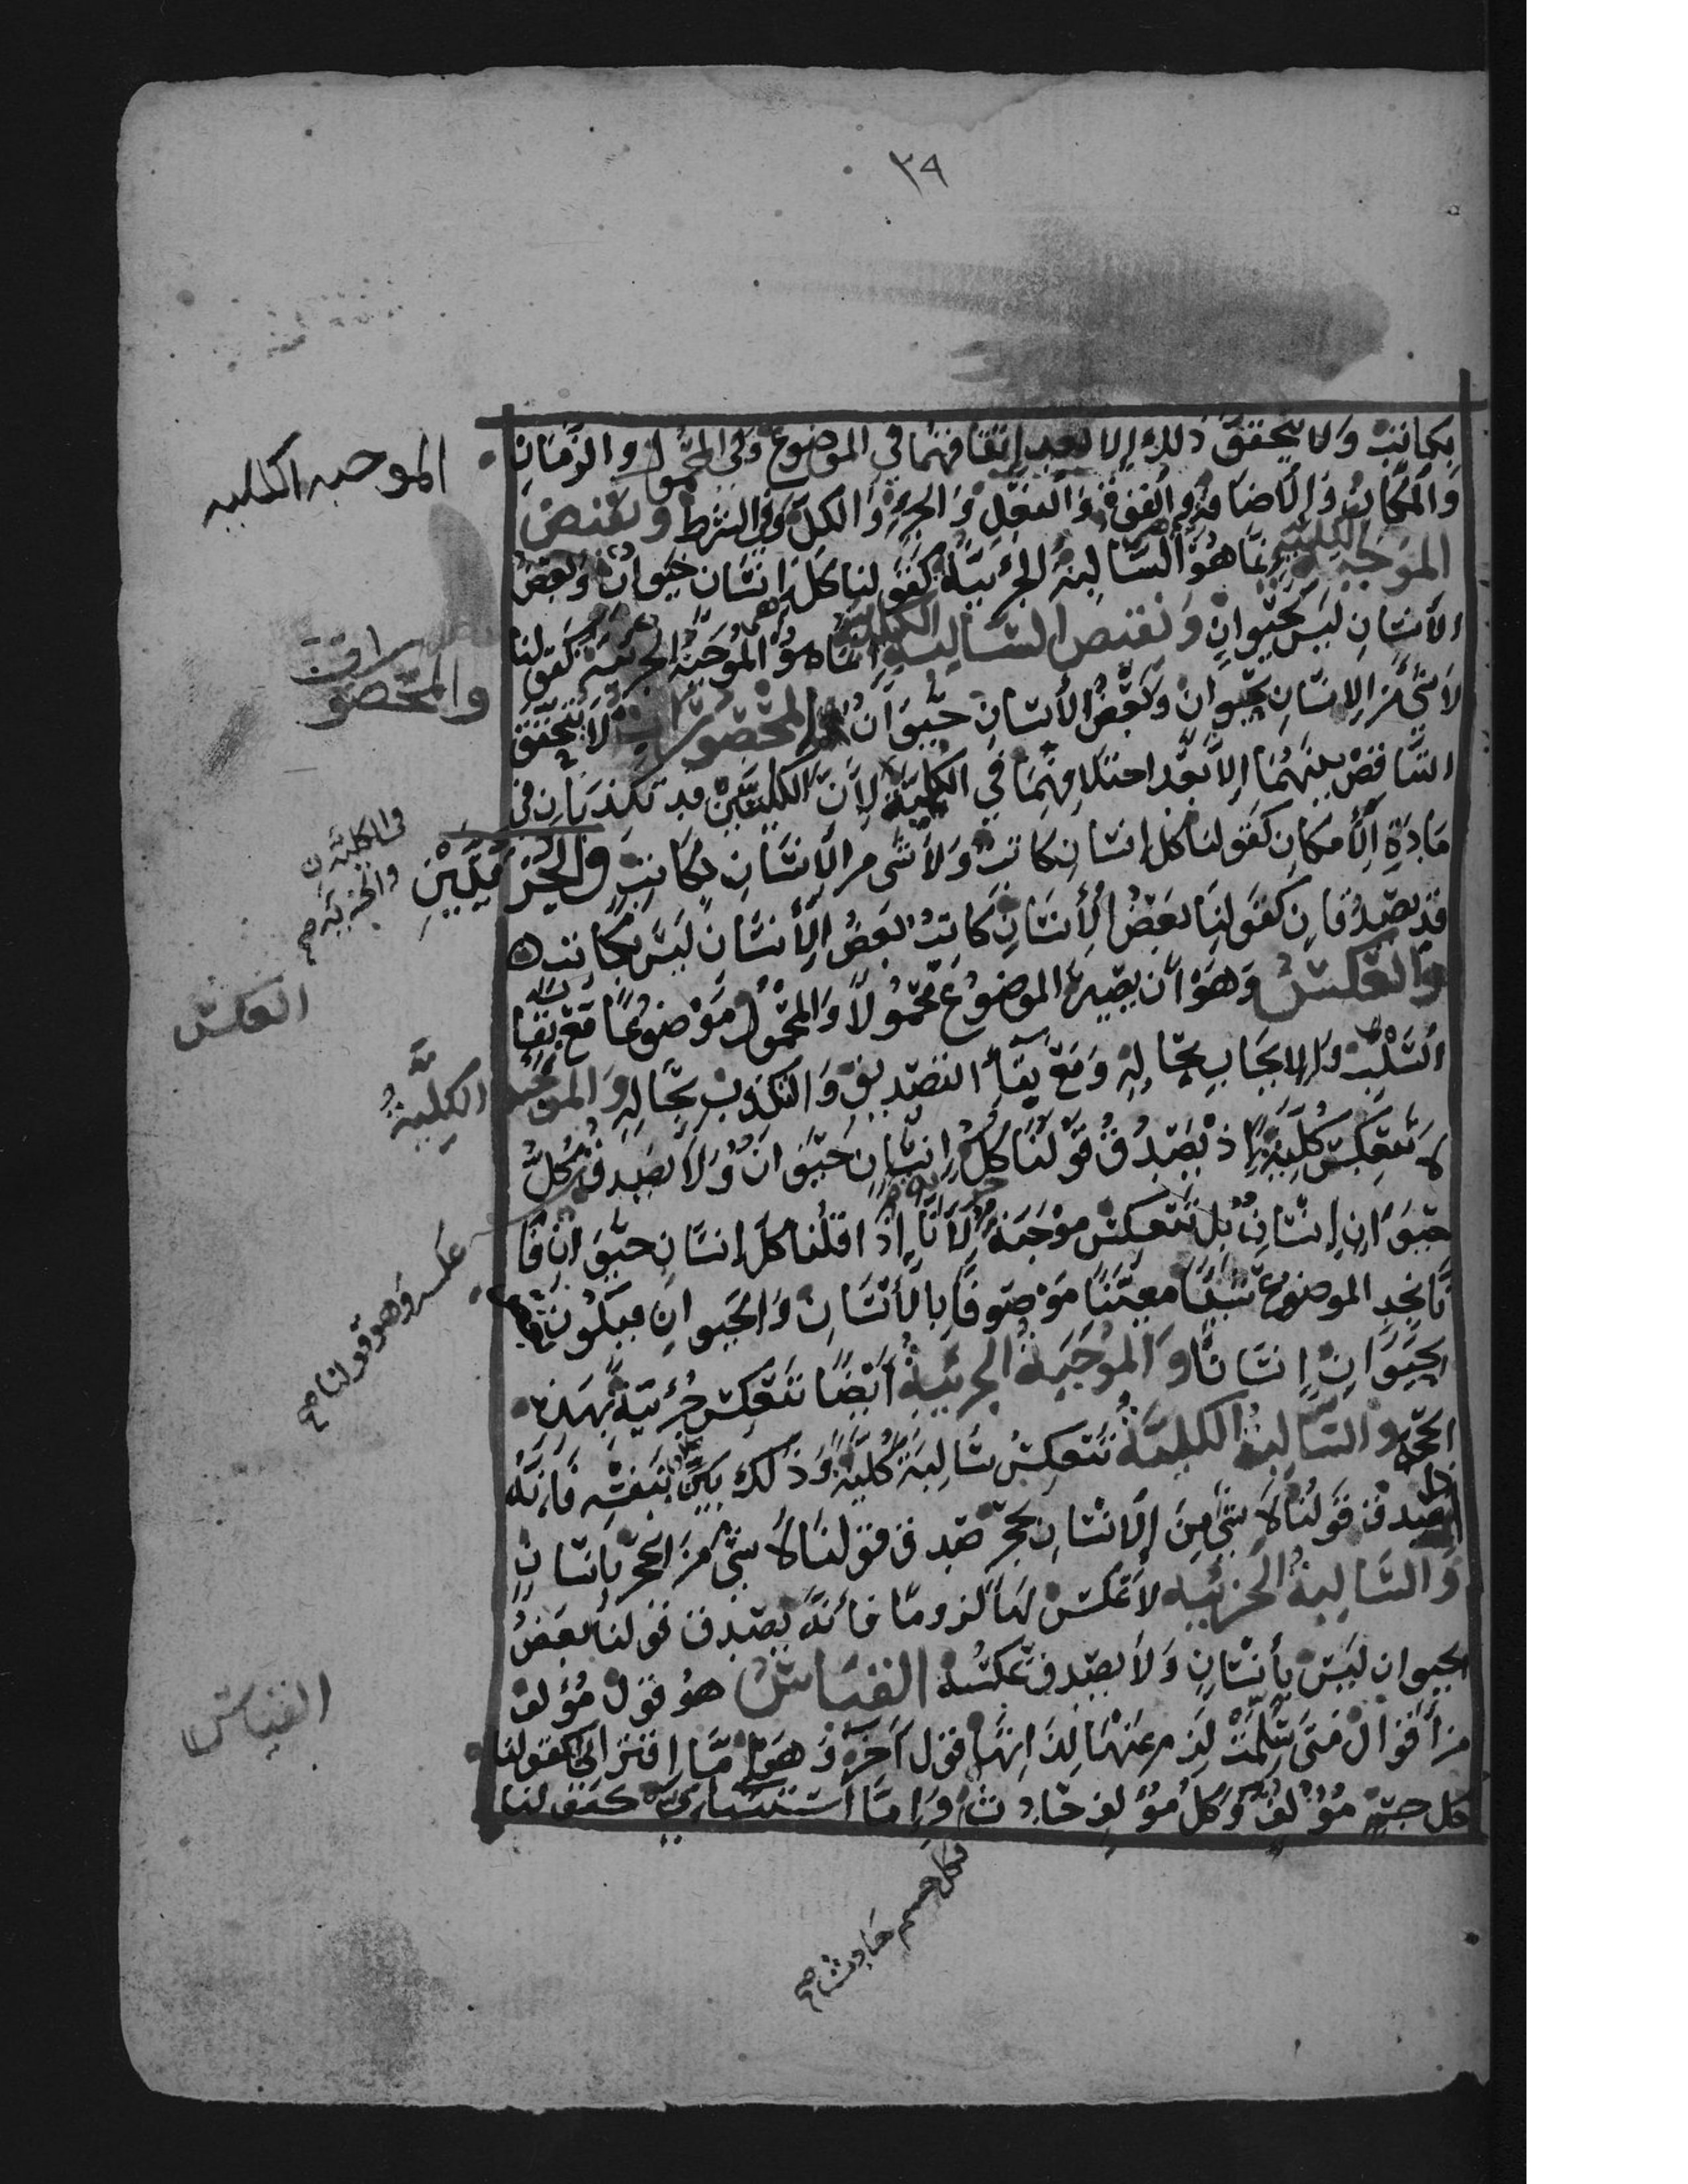 ٣٩
بكاتب ولا يتحقق ذلك إلا بعد اتفاقهما في الموضوع وفي المحمول والزمان
والمكان والاضافة والقوة والفعل والجزء والكل وفي الشرط ونقيض
الموجبة الكلية إنما هو السالبة الجزئية كقولنا كل إنسان حيوان وبعض
الانسان ليس بحيوان ونقيض السالبة الكلية إنما هو الموجبة الجزئية كقولنا
لا شئ من الانسان بحيوان وبعض الأنسان حيوان المحصورات لا يتحقق
التناقض بينهما إلا بعد اختلافهما في الكلية لأن الكليتين قد تكذبان في
مادة الأمكان كقولنا كل انسان كاتب ولا شئ من الأنسان بكاتب والجزئيتين
قد يصدقان كقولنا بعض الأنسان كاتب بعض الأنسان ليس بكاتب
والعكس وهو أن يصير الموضوع محمولا والمحمول موضوعا مع بقاء
السلب والإيجاب بحاله ومع بقاء التصديق والتكذيب بحاله والموجبة الكلية
لا تنعكس كلية إذ يصدق قولنا كل إنسان حيوان ولا يصدق كل
حيوان إنسان بل تنعكس موجبة جزئية لأنا إذا قلنا كل إنسان حيوان فا
نا نجد الموضوع شيئا معينا موصوفا بالأنسان والحيوان فيكون بعض
الحيوان إنسانا والموجبة الجزئية أيضا تنعكس جزئية بهذه
الحجة والسالبة الكلية تنعكس سالبة كلية وذلك بين بنفسه فانه
إذا صدق قولنا لا شئ من الانسان بحجر صدق قولنا لا شئ من الحجر بانسان
والسالبة الجزئيه لا عكس لها لزوما فانه يصدق قولنا بعض
الحيوان ليس بأنسان ولا يصدق عكسه القياس هو قول مؤلف
من أقوال متى سلمت لزم عنها لذاتها قول آخر وهو إما اقتراني كقولنا
كل جسم مؤلف وكل مؤلف حادث وإما استثنائي كقولنا
الموجبه الكليه
والمحصورات
في الكلية
والجزئية صح
العكس
عكسه وهو قولنا صح
القياس
فكل جسم حادث صح